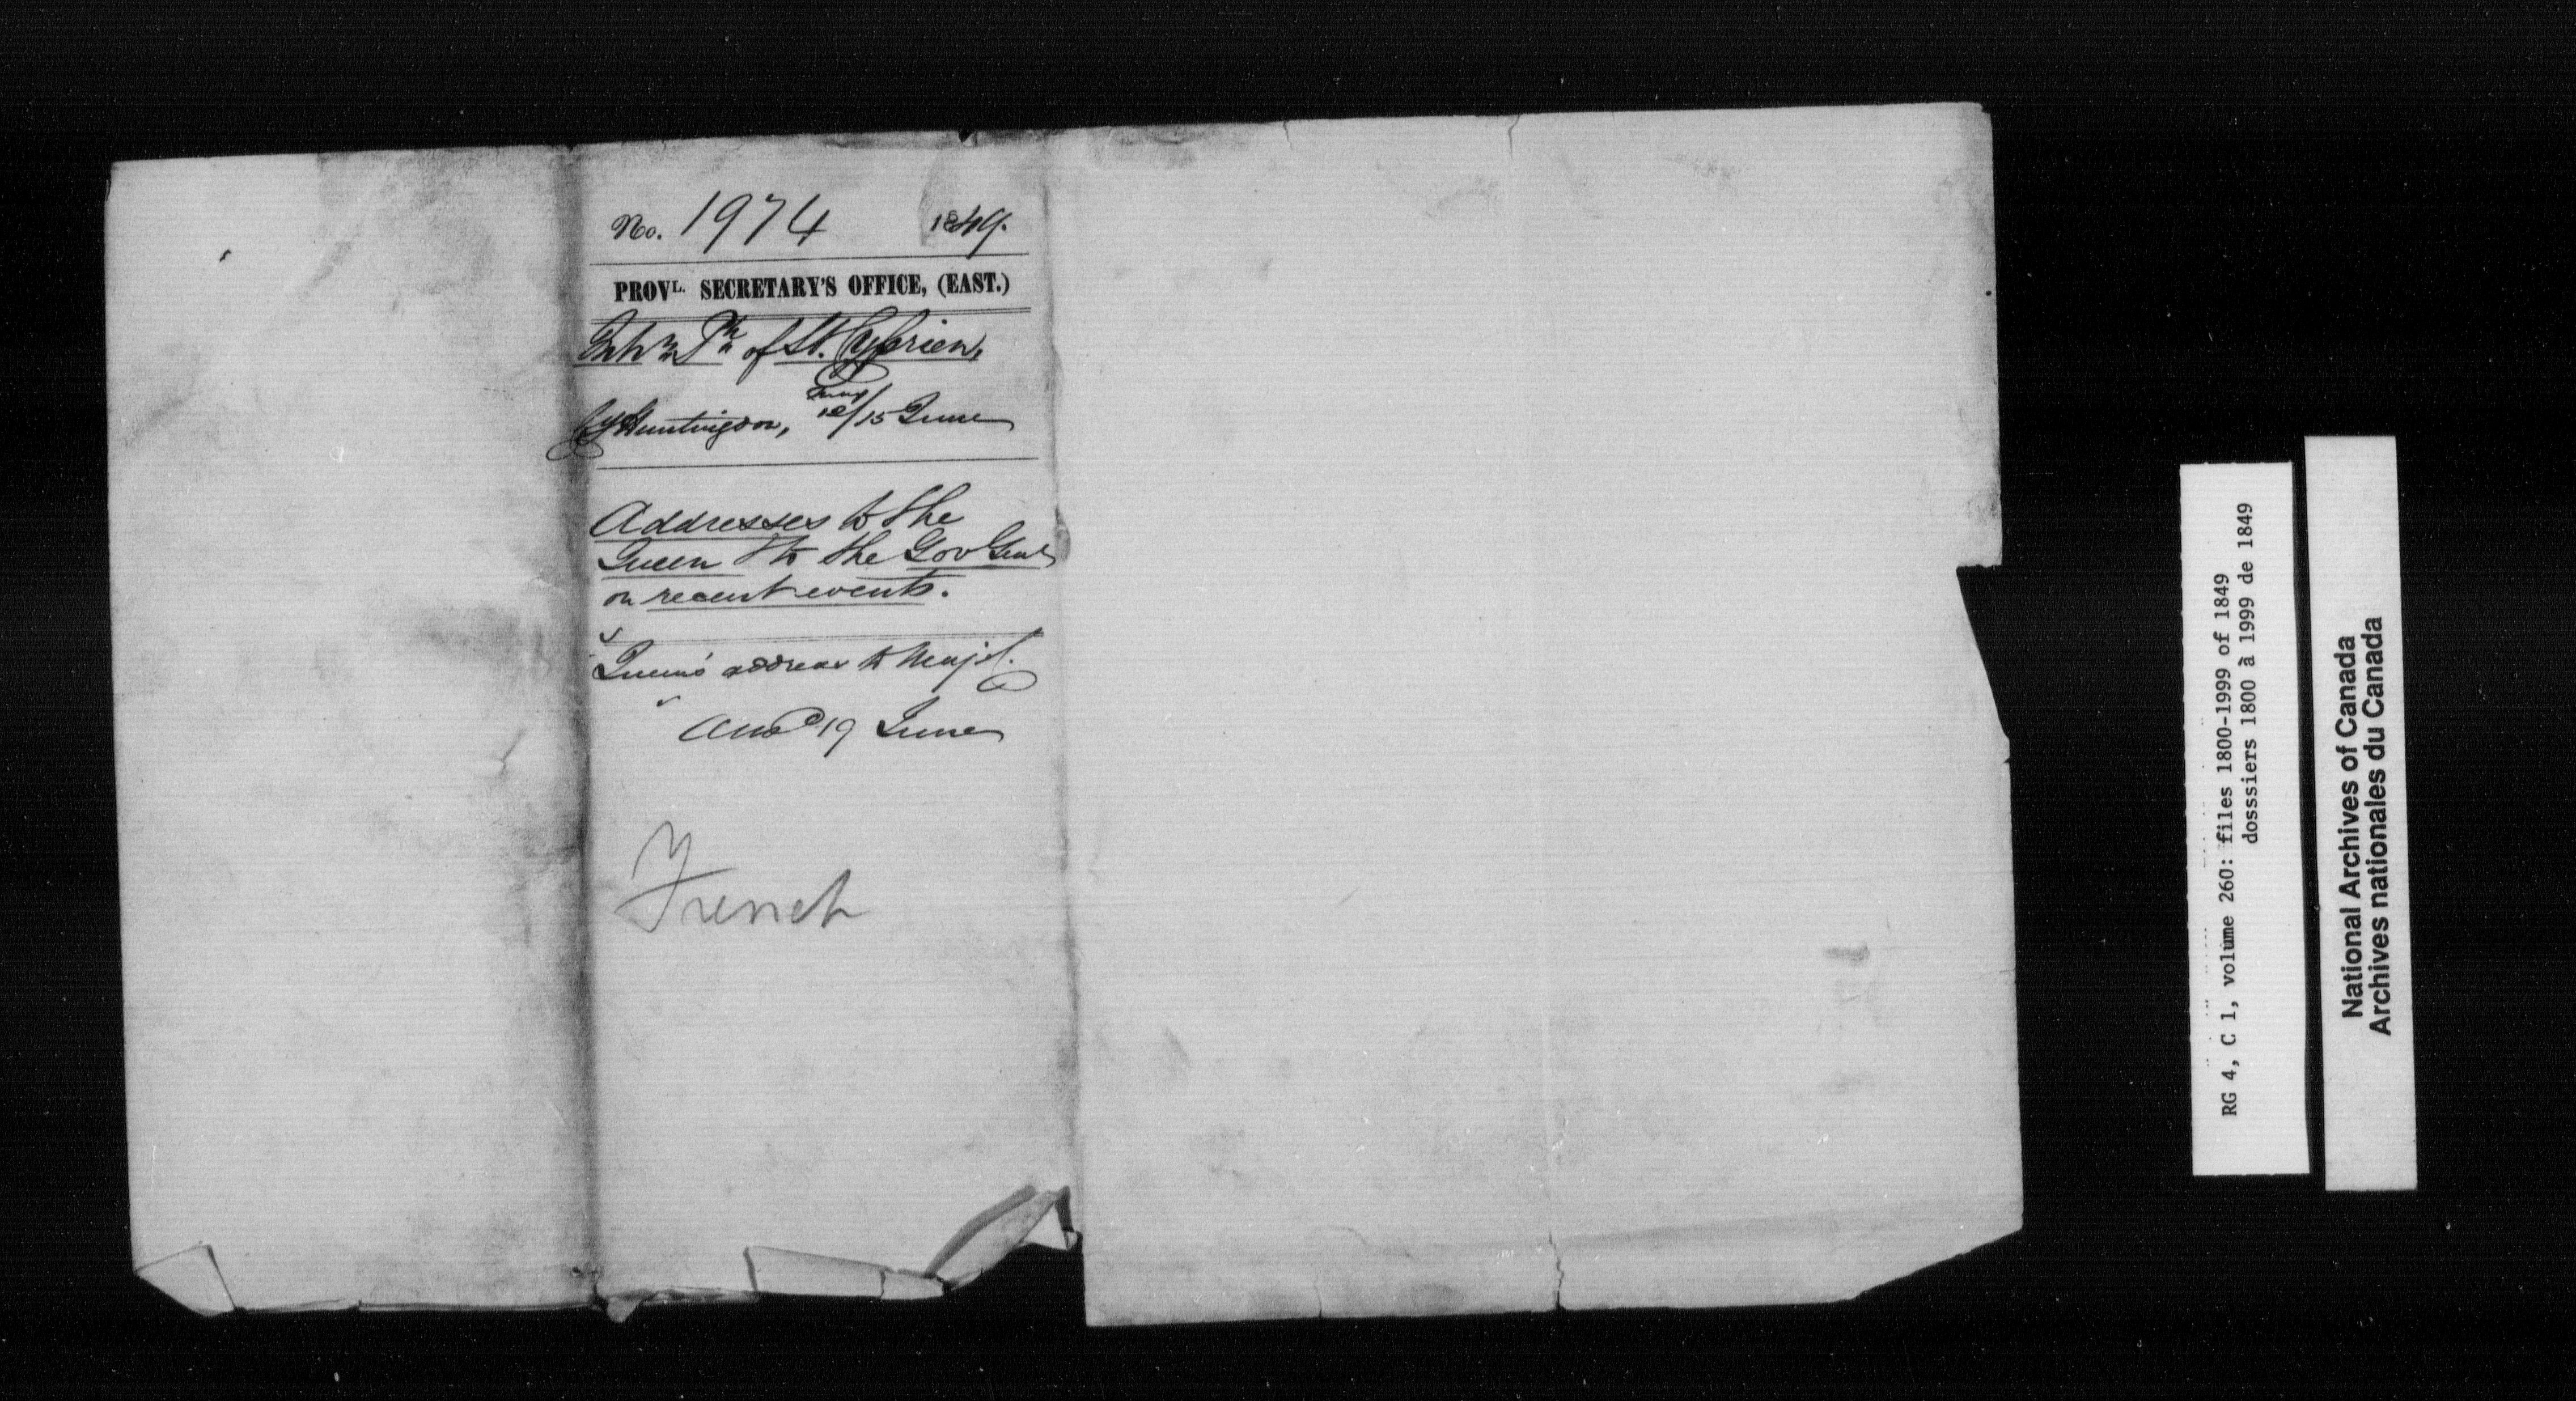 No. 1974 1849.
PROVL. SECRETARY'S OFFICE, (EAST.)
Inhts Ph of St. Cyprien,
Cy Huntingdon, 12/15 June
Addresses to the
Queen & to the Gov Genl
on recent events.
Queen's address to Majst.
Ansd 19 June
French
RG 4, C 1, volume 260: files 1800-1999 of 1849
dosssiers 1800 à 1999 de 1849
National Archives of Canada
Archives nationales du Canada